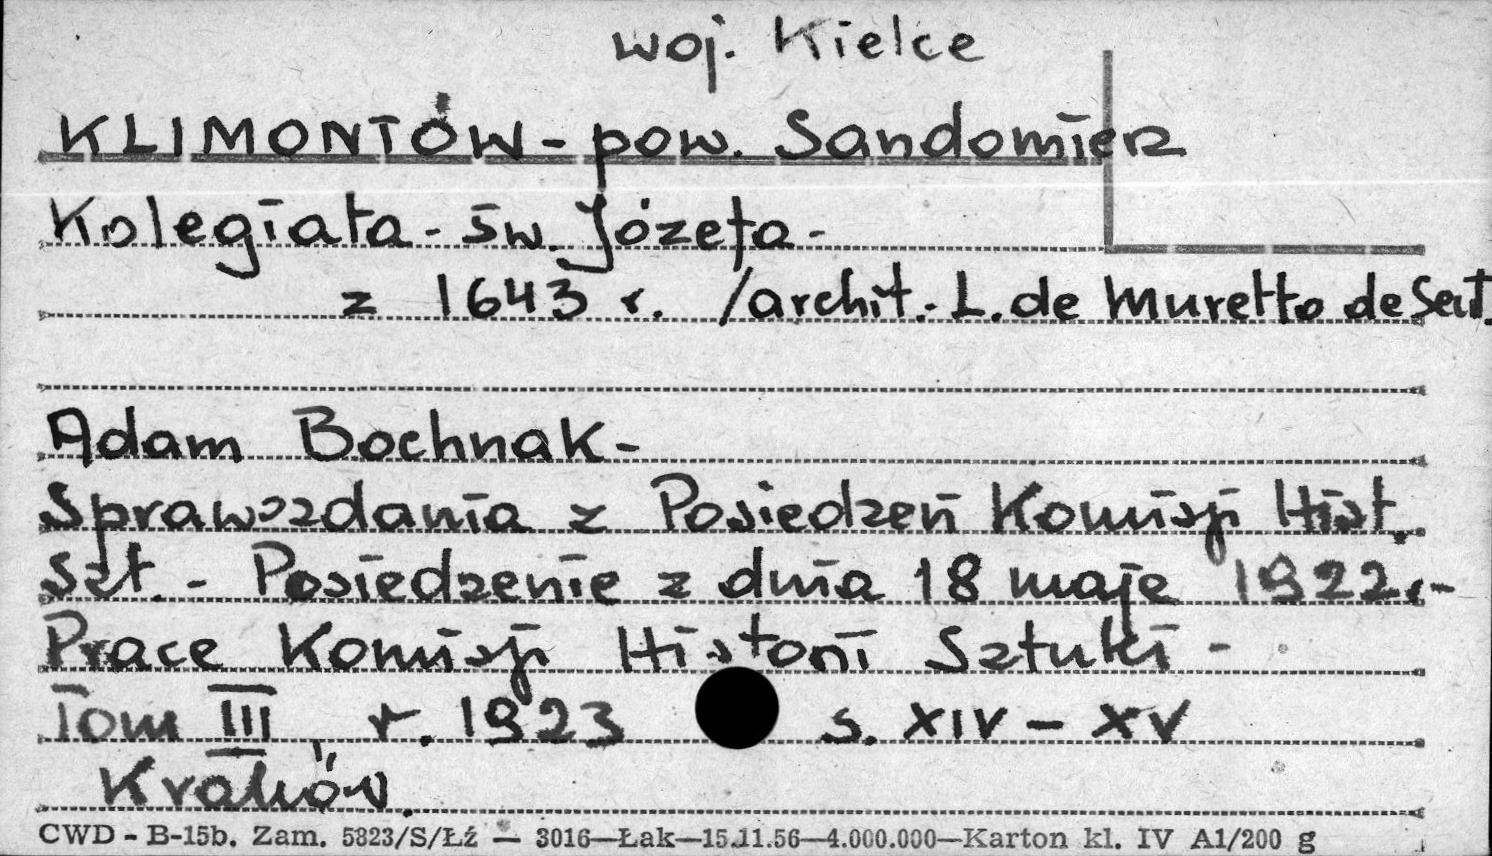 woj. Kielce
KLIMONTÓW - pow. Sandomierz
Kolegiata - św. Józefa -
z 1643 r. /archit. - L. de Muretto de Sent.
Adam Bochnak -
Sprawozdania z Posiedzeń Komisji Hist.
Szt. - Posiedzenie z dnia 18 maja 1922 r. -
Prace Komisji Historii Sztuki -
Tom III, r. 1923 s. XIV - XV
Kraków.
CWD - B-15b. Zam. 5823/S/Łź — 3016—Łak—15.11.56—4.000.000—Karton kl. IV A1/200 g